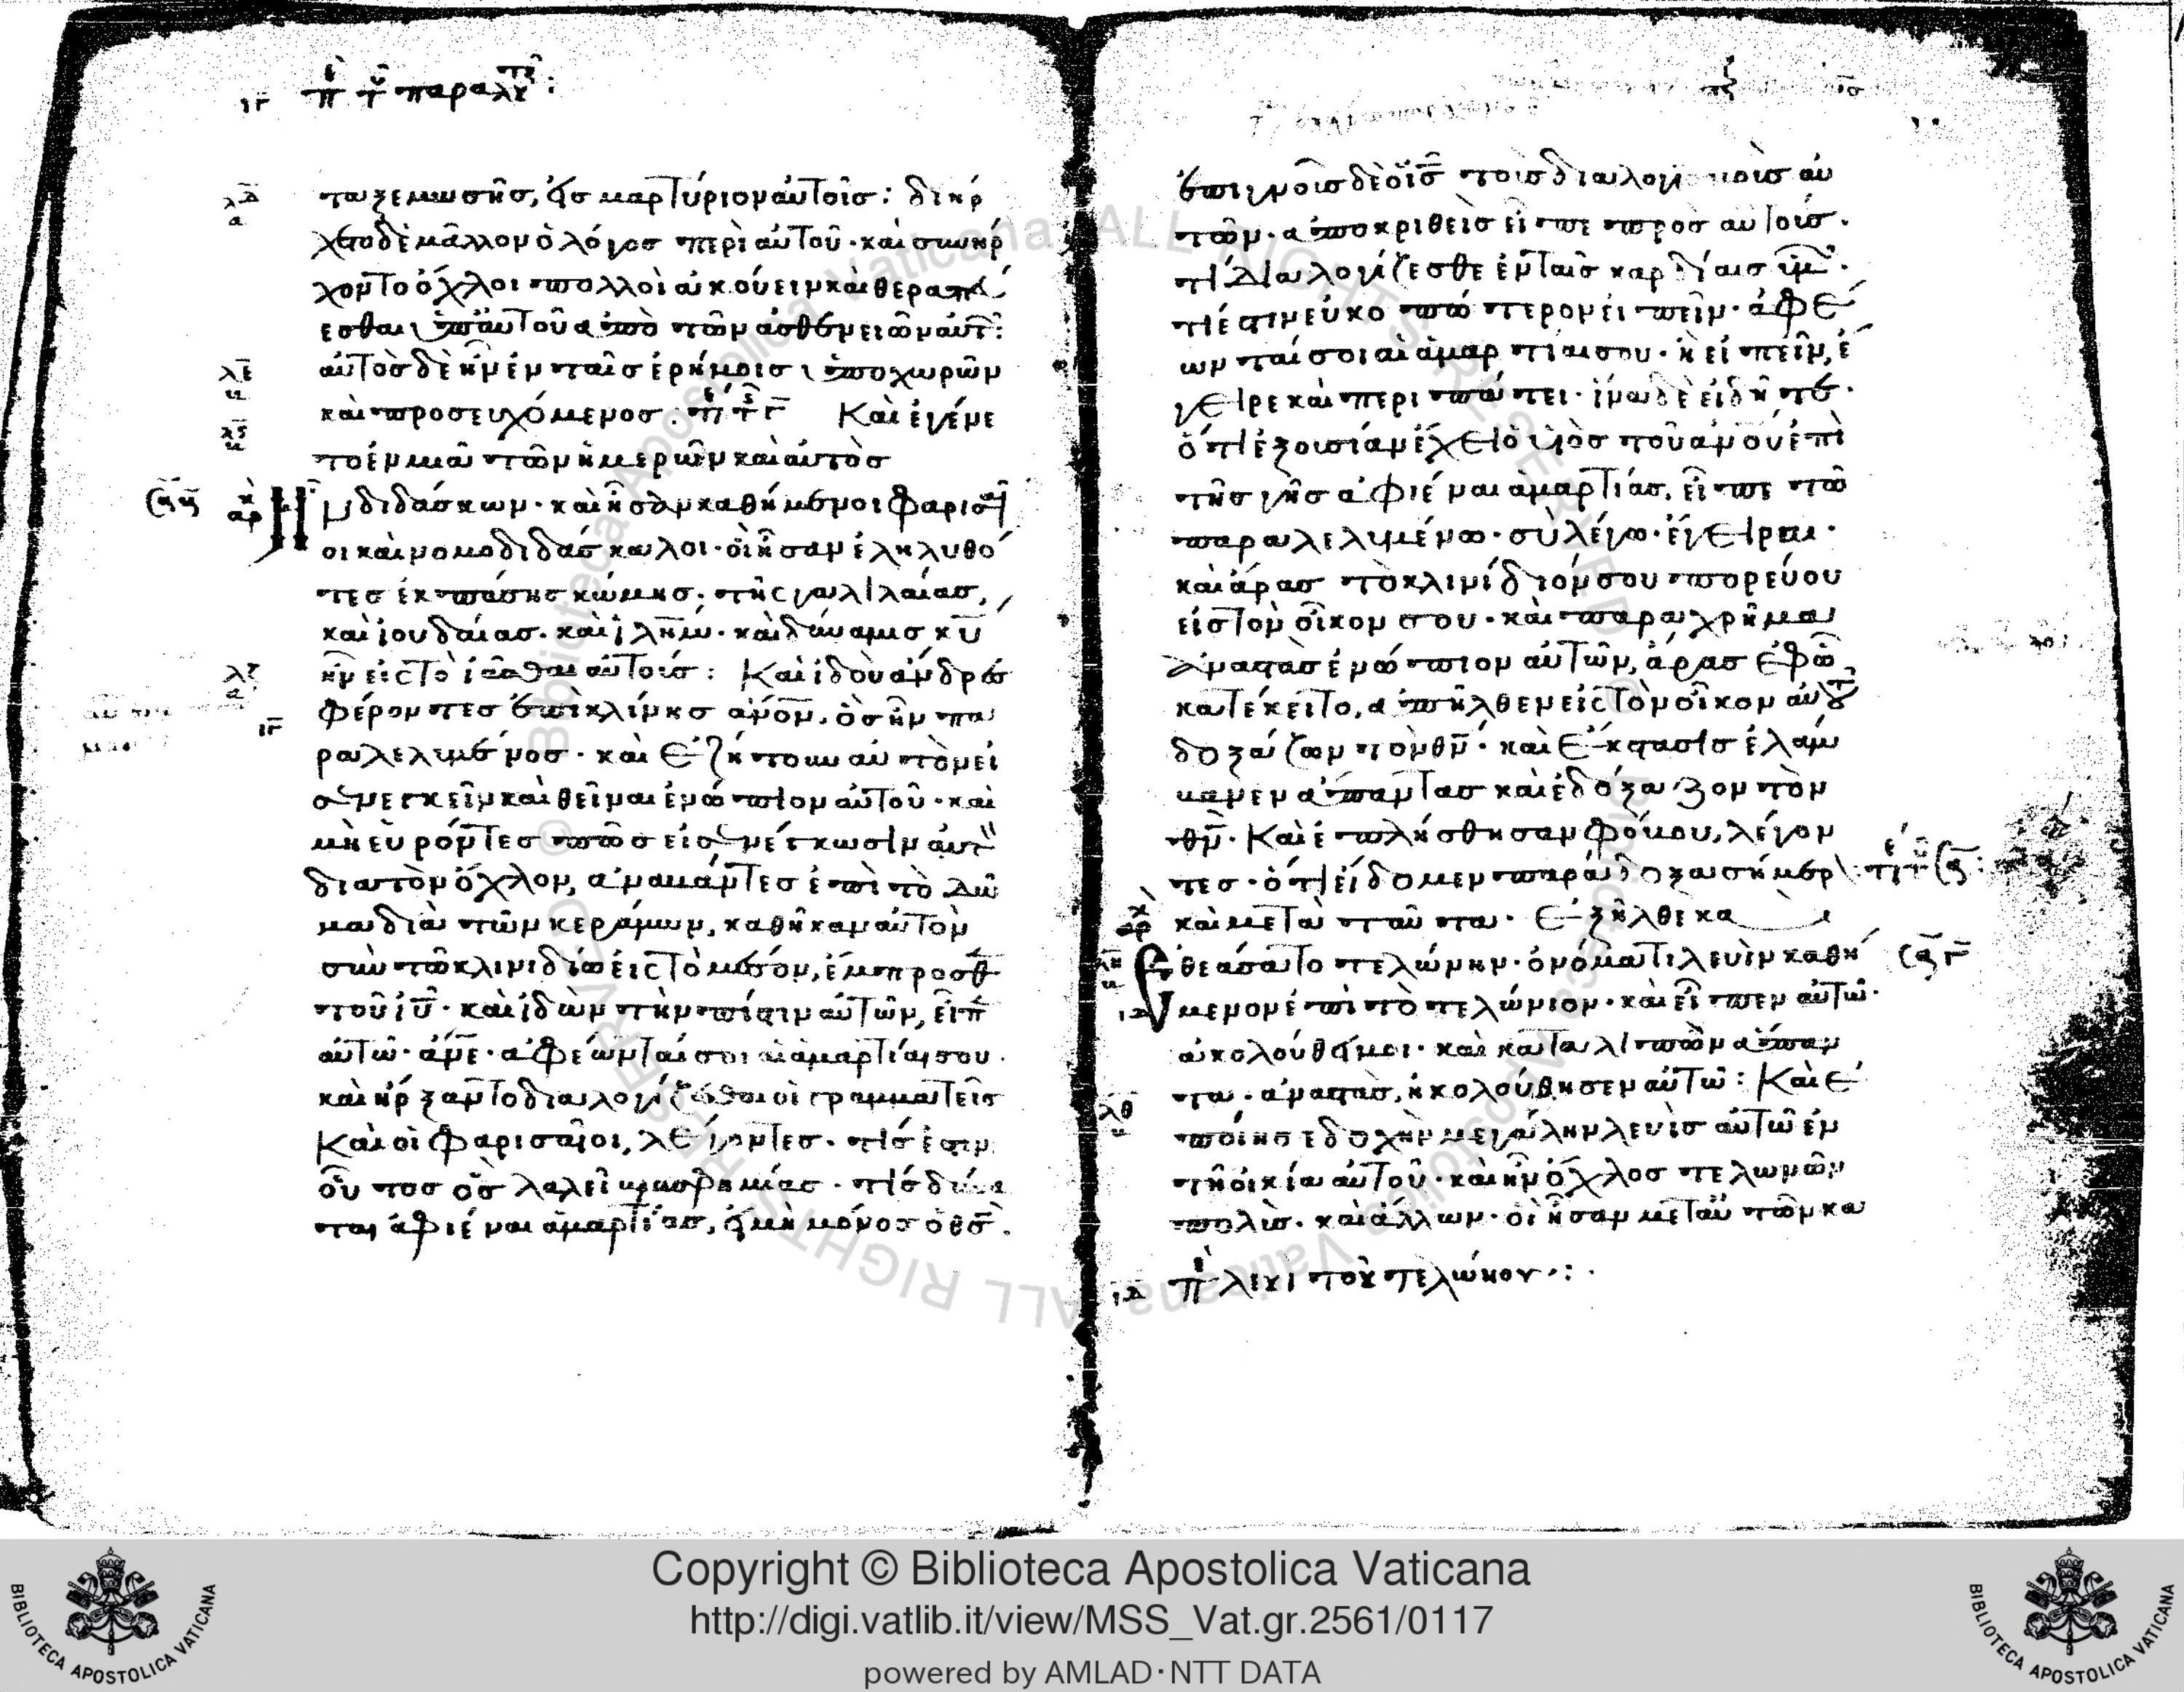 ιγ πὲ τοῦ παραλυτι:
ταξε μωσῆς, εἰς μαρτύριον αὐτοῖς: διήρ
χετο δὲ μᾶλλον ὁ λόγος περὶ αὐτοῦ· καὶ συνήρ
χοντο ὄχλοι πολλοὶ ἀκούειν καὶ θεραπεύ
εσθαι ὑπ' αὐτοῦ ἀπὸ τῶν ἀσθενειῶν αὐτ:
αὐτὸς δὲ ἦν ἐν ταῖς ἐρήμοις ὑποχωρῶν
καὶ προσευχόμενος: Καὶ ἐγένε
το ἐν μιᾶ τῶν ἡμερῶν καὶ αὐτὸς
Ην διδάσκων· καὶ ἦσαν καθήμενοι φαρισαῖ
οι καὶ νομοδιδάσκαλοι· οἳ ἦσαν ἐληλυθό
τες ἐκ πάσης κώμης, τῆς γαλιλαίας,
καὶ ἰουδαίας· καὶ ἰλημ· καὶ δύναμις κυ
ἦν εἰς τὸ ἰᾶσθαι αὐτούς: Καὶ ἰδοὺ ἄνδρες
φέροντες ἐπὶ κλίνης ανον, ὃς ἦν πα
ραλελυμένος· καὶ ἐζήτουν αὐτὸν εἰ
σενεγκεῖν καὶ θεῖναι ἐνώπιον αὐτοῦ· καὶ
μὴ εὑρόντες πῶς εἰσενέγκωσιν αὐτὸ
διὰ τὸν ὄχλον, ἀναβάντες ἐπὶ τὸ δῶ
μα διὰ τῶν κεράμων, καθῆκαν αὐτὸν
σὺν τῶ κλινιδίω εἰς τὸ μέσον, ἔμπροσθ
τοῦ ιυ· καὶ ἰδὼν τὴν πίστιν αὐτῶν, εἶπ
αὐτῶ· ανε· ἀφέωνταί σοι αἱ ἁμαρτίαι σου·
καὶ ἤρξαντο διαλογίζεσθαι οἱ γραμματεῖς
Καὶ οἱ φαρισαῖοι, λέγοντες· τίς ἐστιν
οὗτος ὃς λαλεῖ βλασφημίας· τίς δύνα
ται ἀφιέναι ἁμαρτίας, εἰ μὴ μόνος ὁ θς·
ἐπιγνοὺς δὲ ὁ ις τοὺς διαλογισμοὺς αὐ
τῶν· ἀποκριθεὶς εἶπε πρὸς αὐτούς·
τί διαλογίζεσθε ἐν ταῖς καρδίαις ὑμ·
τί ἐστιν εὐκοπώτερον εἰπεῖν· ἀφέ
ωνταί σοι αἱ ἁμαρτίαι σου· ἢ εἰπεῖν, ἔ
γειρε καὶ περιπάτει· ἵνα δὲ εἰδῆτε·
ὅτι ἐξουσίαν ἔχει ὁ υἱὸς τοῦ ανου ἐπὶ
τῆς γῆς ἀφιέναι ἁμαρτίας, εἶπε τῶ
παραλελυμένω· σὺ λέγω· ἔγειραι·
καὶ ἄρας τὸ κλινίδιόν σου πορεύου
εἰς τὸν οἶκον σου· καὶ παραχρῆμα
ἀναστὰς ἐνώπιον αὐτῶν, ἄρας ἐφ' ὧ
κατέκειτο, ἀπῆλθεν εἰς τὸν οἶκον αὐτοῦ
δοξάζων τὸν θν· καὶ ἔκστασις ἔλαβ
βανεν ἅπαντας καὶ ἐδόξαζον τὸν
θν· Καὶ ἐπλήσθησαν φόβου, λέγον
τες· ὅτι εἴδομεν παράδοξα σήμερ:
καὶ μετὰ ταῦτα· ἐξῆλθε κα ὶ
ἐθεάσατο τελώνην· ὀνόματι λευὶν καθή
μενον ἐπὶ τὸ τελώνιον· καὶ εἶπεν αὐτῶ·
ἀκολούθει μοι· καὶ καταλιπὼν ἅπαν
τα· ἀναστὰς, ἠκολούθησεν αὐτῶ: Καὶ ἐ
ποίησε δοχὴν μεγάλην λευὶς αὐτῶ ἐν
τῆ οἰκία αὐτοῦ· καὶ ἦν ὄχλος τελωνῶν
πολὺς· καὶ ἄλλων· οἳ ἦσαν μετ' αὐτῶν κα
ιδ πὲ λευὶ τοῦ τελώνου:
Copyright © Biblioteca Apostolica Vaticana
http://digi.vatlib.it/view/MSS_Vat.gr.2561/0117
powered by AMLAD·NTT DATA
BIBLIOTECA APOSTOLICA VATICANA
BIBLIOTECA APOSTOLICA VATICANA